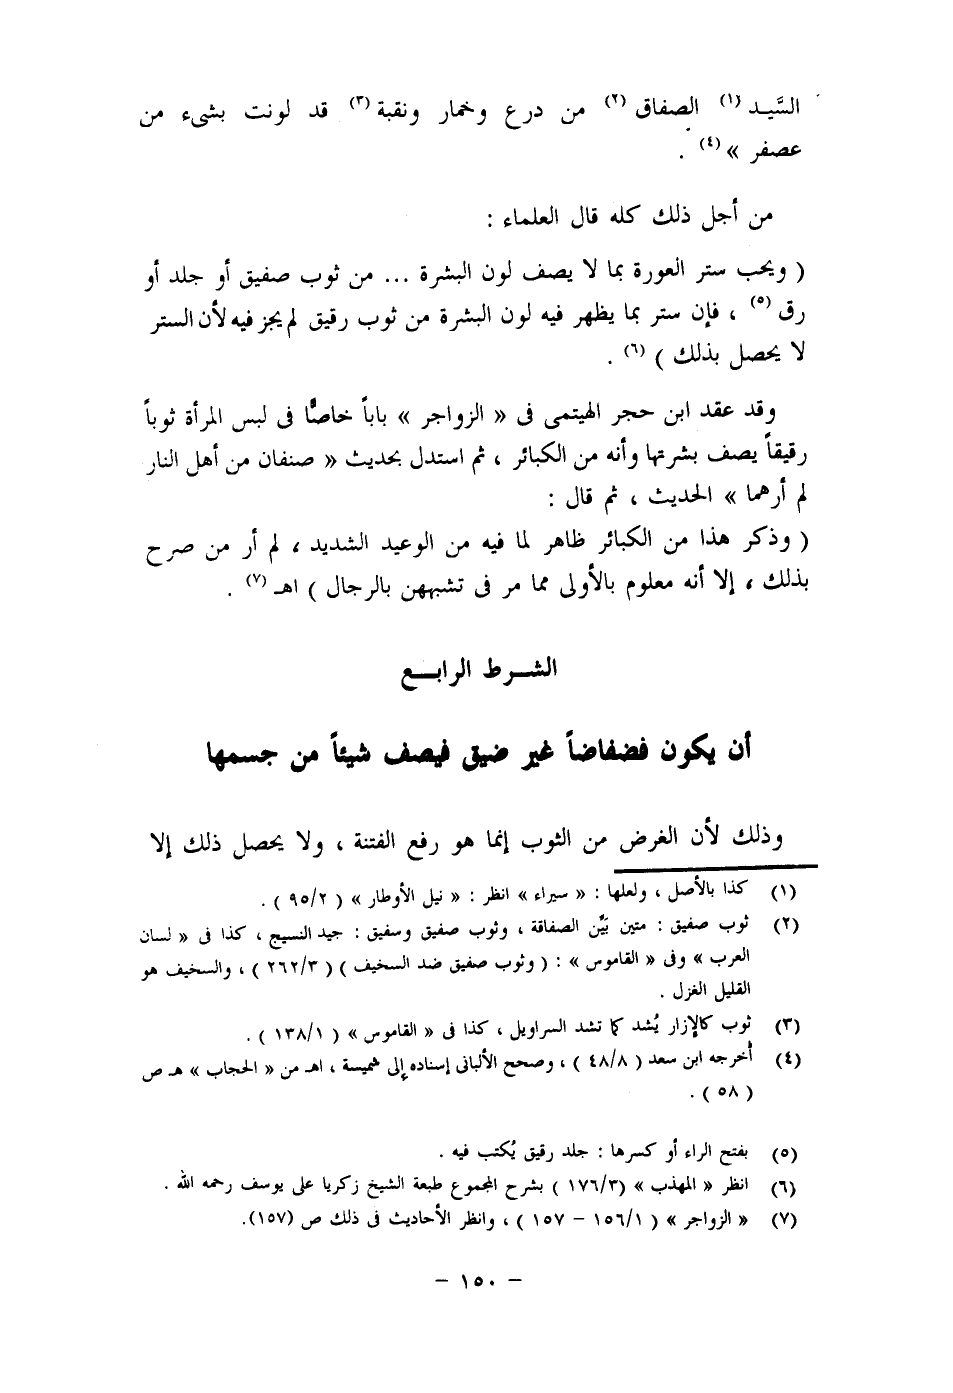 السَّيد (١) الصفاق (٢) من درع وخمار ونقبة (٣) قد لونت بشىء من
عصفر » (٤) .
من أجل ذلك كله قال العلماء :
( ويجب ستر العورة بما لا يصف لون البشرة ... من ثوب صفيق أو جلد أو
رق (٥) ، فإن ستر بما يظهر فيه لون البشرة من ثوب رقيق لم يجز فيه لأن الستر
لا يحصل بذلك ) (٦) .
وقد عقد ابن حجر الهيتمى فى « الزواجر » باباً خاصًّا فى لبس المرأة ثوباً
رقيقاً يصف بشرتها وأنه من الكبائر ، ثم استدل بحديث « صنفان من أهل النار
لم أرهما » الحديث ، ثم قال :
( وذكر هذا من الكبائر ظاهر لما فيه من الوعيد الشديد ، لم أر من صرح
بذلك ، إلا أنه معلوم بالأولى مما مر فى تشبههن بالرجال ) اهـ (٧) .
الشـرط الرابـع
أن يكون فضفاضاً غير ضيق فيصف شيئاً من جسمها
وذلك لأن الغرض من الثوب إنما هو رفع الفتنة ، ولا يحصل ذلك إلا
(١) كذا بالأصل ، ولعلها : « سيراء » انظر : « نيل الأوطار » ( ٩٥/٢ ) .
(٢) ثوب صفيق : متين بَيِّن الصفاقة ، وثوب صفيق وسفيق : جيد النسيج ، كذا فى « لسان
العرب » وفى « القاموس » : ( وثوب صفيق ضد السخيف ) ( ٢٦٢/٣ ) ، والسخيف هو
القليل الغزل .
(٣) ثوب كالإزار يُشد كما تشد السراويل ، كذا فى « القاموس » ( ١٣٨/١ ) .
(٤) أخرجه ابن سعد ( ٤٨/٨ ) ، وصحح الألبانى إسناده إلى شميسة ، اهـ من « الحجاب » هـ ص
( ٥٨ ) .
(٥) بفتح الراء أو كسرها : جلد رقيق يُكتب فيه .
(٦) انظر « المهذب » (١٧٦/٣ ) بشرح المجموع طبعة الشيخ زكريا على يوسف رحمه الله .
(٧) « الزواجر » ( ١٥٦/١ – ١٥٧ ) ، وانظر الأحاديث فى ذلك ص (١٥٧).
– ١٥٠ –